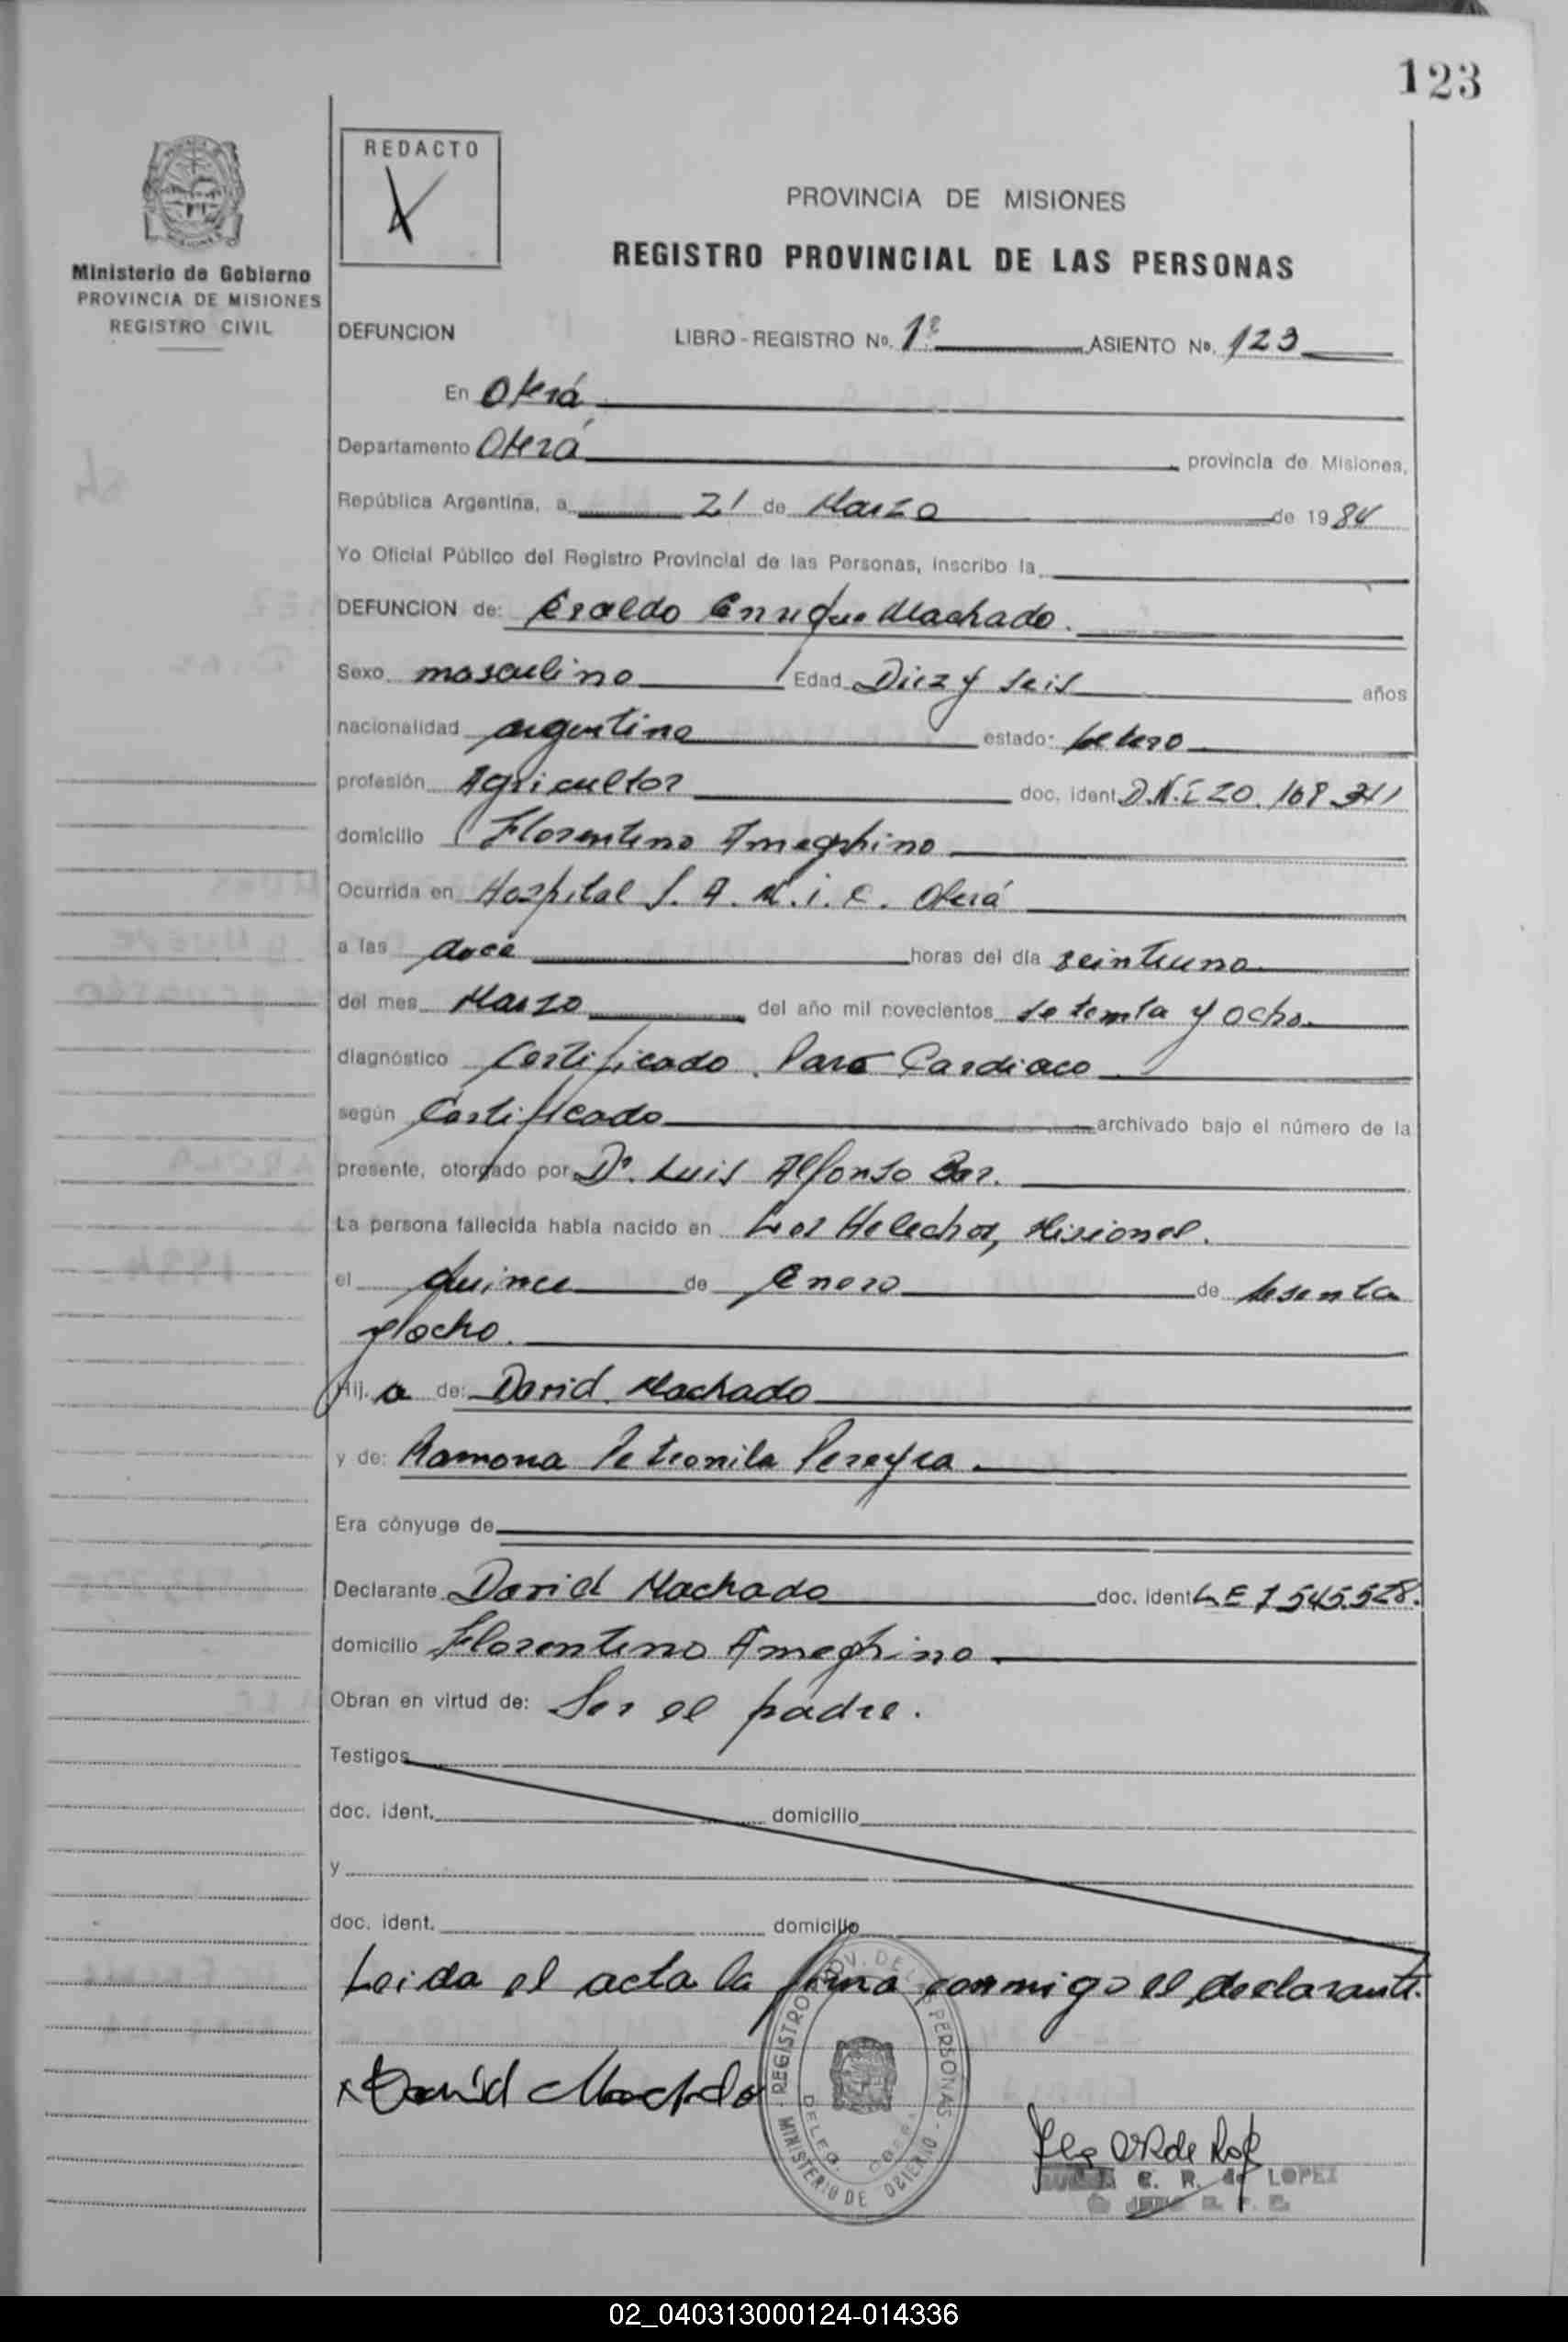 123
REDACTO
PROVINCIA DE MISIONES
REGISTRO PROVINCIAL DE LAS PERSONAS
Ministerio de Gobierno
PROVINCIA DE MISIONES
REGISTRO CIVIL
DEFUNCION LIBRO - REGISTRO Nº. 1º ASIENTO Nº. 123
En Oberá
Departamento Oberá provincia de Misiones,
República Argentina, a 21 de Marzo de 1984
Yo Oficial Público del Registro Provincial de las Personas, inscribo la
DEFUNCION de: Eraldo Enrique Machado.
Sexo masculino Edad Diez y seis años
nacionalidad argentina estado: soltero
profesión Agricultor doc. ident. D.N.I 20.168.311
domicilio Florentino Ameghino
Ocurrida en Hospital S. A. M. i. C. Oberá
a las doce horas del día veintiuno
del mes Marzo del año mil novecientos setenta y ocho.
diagnóstico Certificado. Paro Cardiaco
según Certificado archivado bajo el número de la
presente, otorgado por Dr. Luis Alfonso Bar.
La persona fallecida había nacido en Los Helechos, Misiones.
el quince de Enero de sesenta
y ocho.
Hij. o de: David Machado
y de: Ramona Petronila Pereyra.
Era cónyuge de
Declarante David Machado doc. ident. L E 7.545.528.
domicilio Florentino Ameghino.
Obran en virtud de: Ser el padre.
Testigos
doc. ident. domicilio
y
doc. ident. domicilio
Leida el acta la firma conmigo el declarante.
x David Machado
REGISTRO PROV. DE LAS PERSONAS - MINISTERIO DE GOBIERNO
DELEG. OBERA
C. R. de LOPEZ
02_040313000124-014336